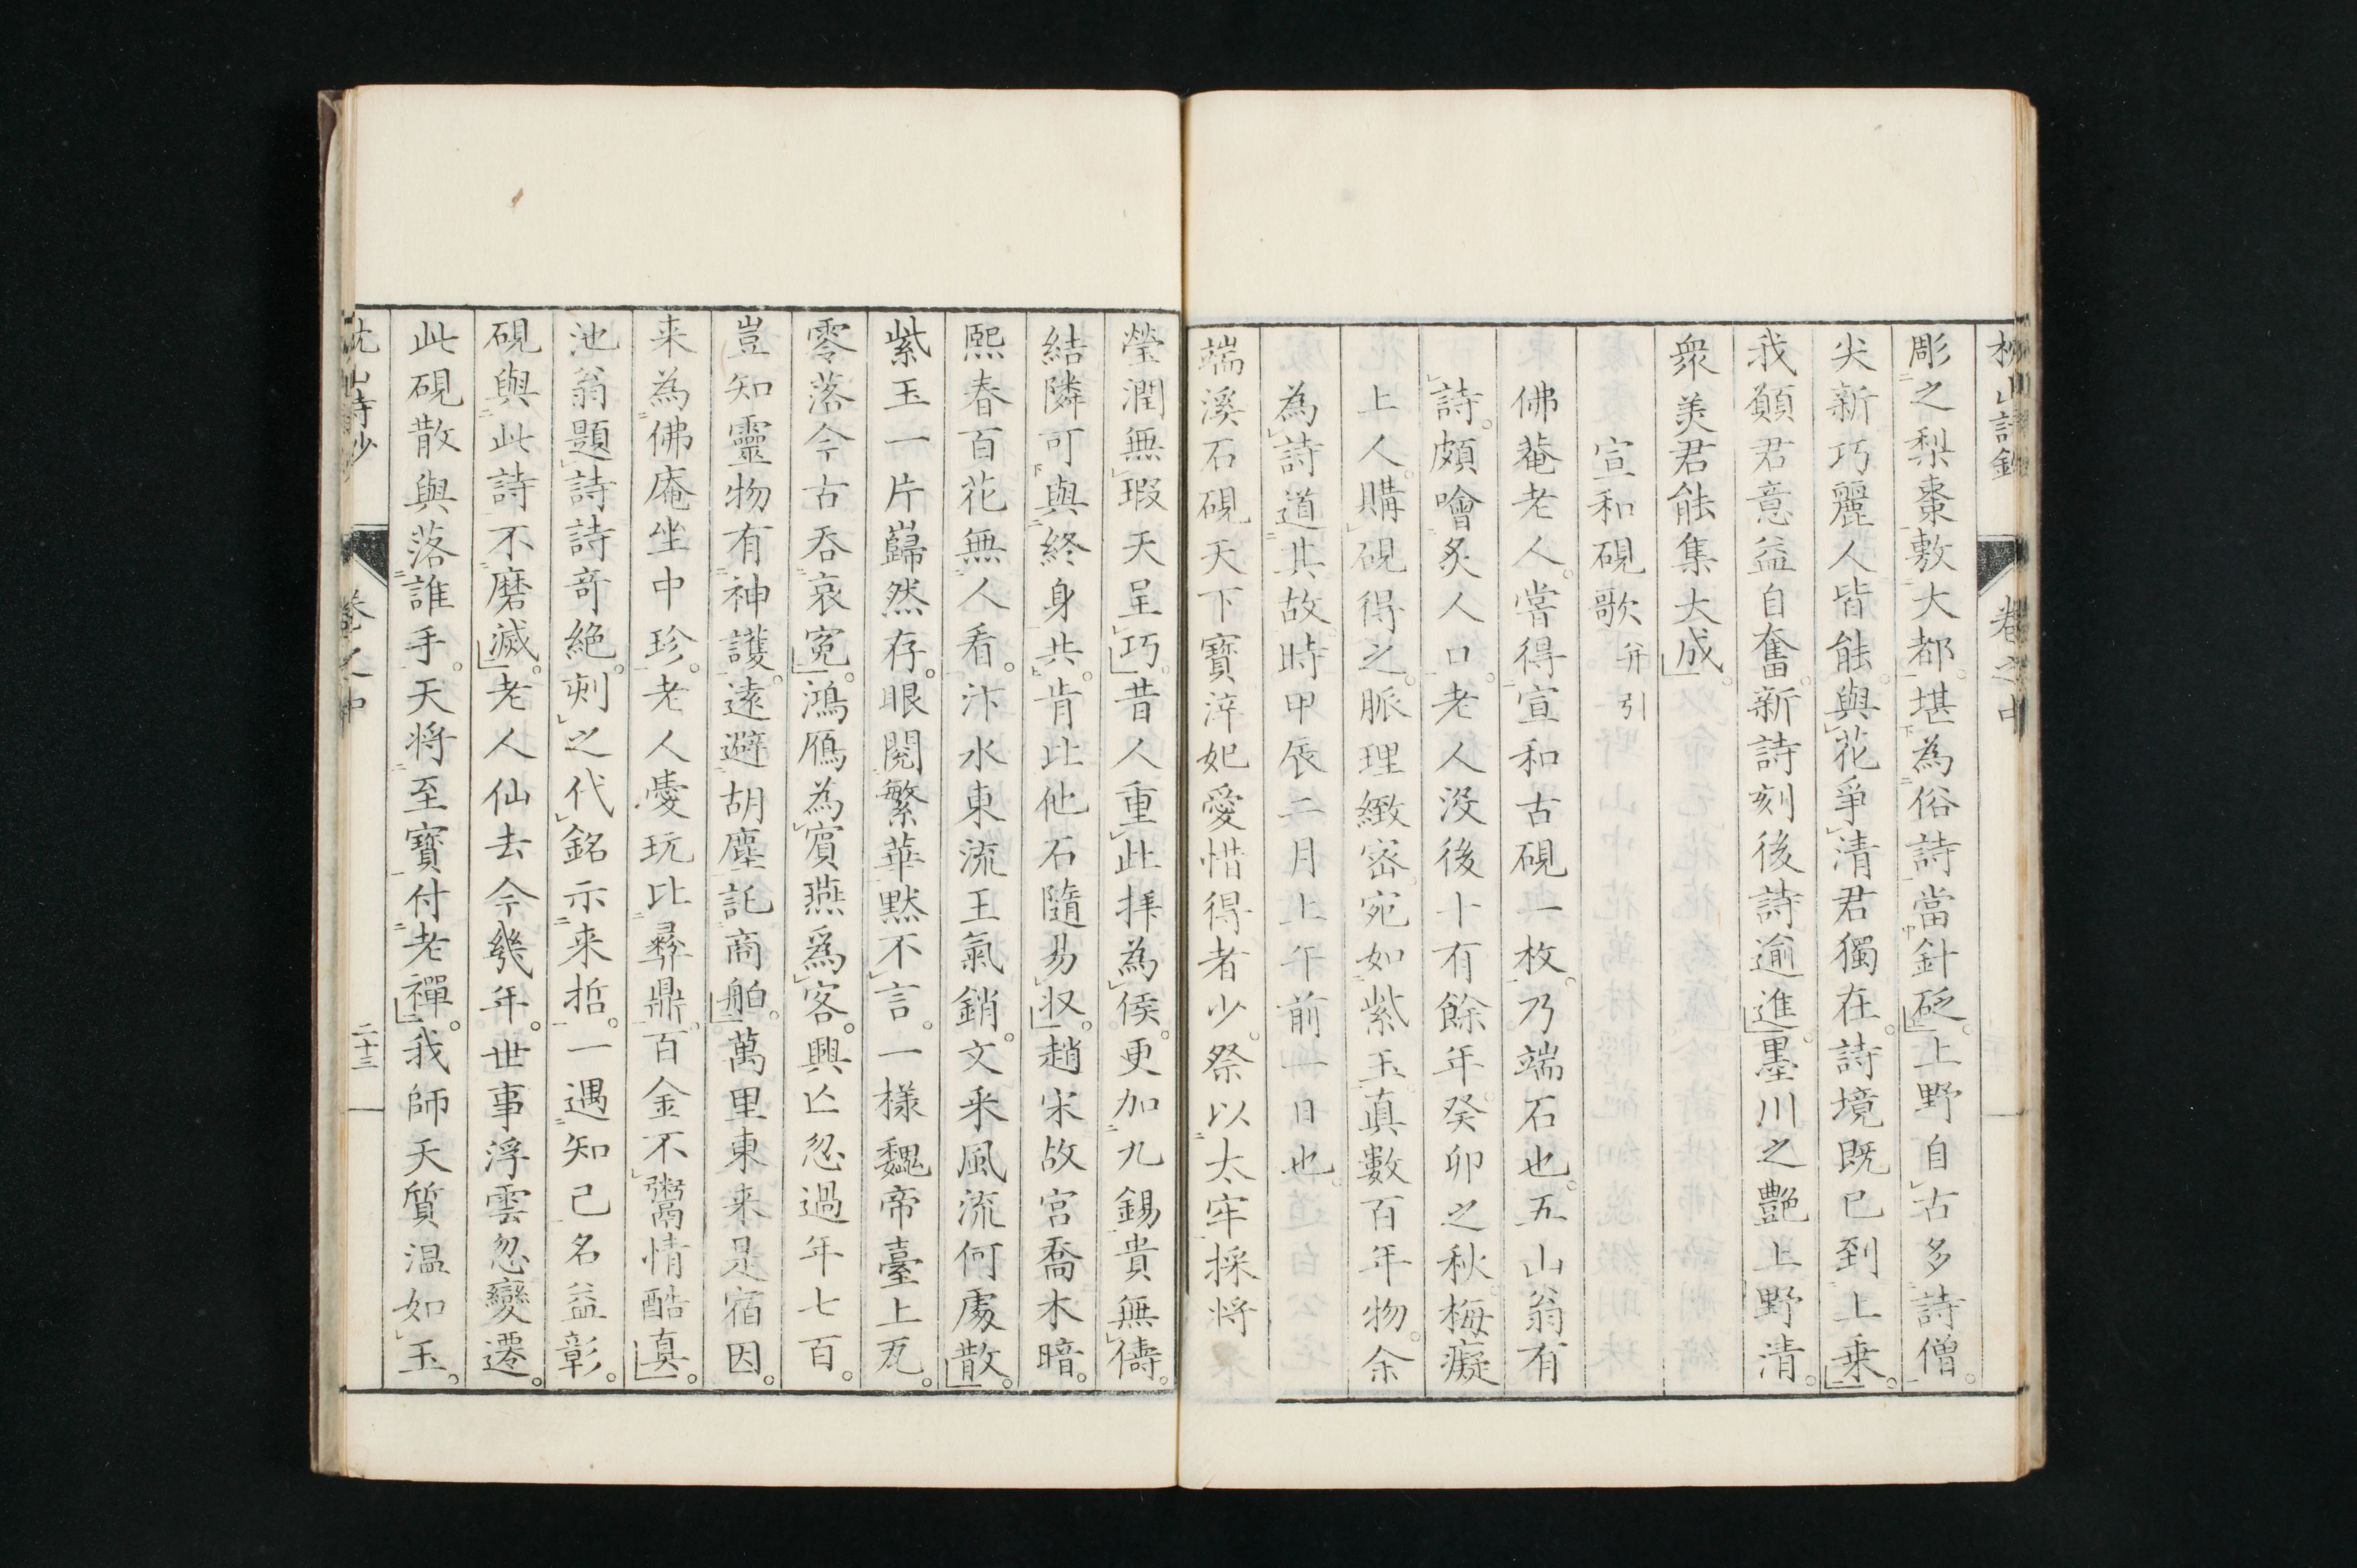 彫之梨棗敷大都。堪為俗詩當針砭。上野自古多詩僧。
尖新巧麗人皆能。與花爭清君獨在。詩境既已到上乗。
我願君意益自奮。新詩刻後詩逾進。墨川之艶上野清。
衆美君能集大成。
宣和硯歌 并引
佛菴老人。嘗得宣和古硯一枚。乃端石也。五山翁有
詩。頗噲炙人口。老人没後十有餘年。癸卯之秋。梅癡
上人。購硯得之。脈理緻密。宛如紫玉。真數百年物。余
為詩道其故。時甲辰二月上午前一日也。
端溪石硯天下寶。淬妃愛惜得者少。祭以太牢採将
瑩潤無瑕天呈巧。昔人重此拝為侯。更加九錫貴無儔。
結隣可與終身共。肯比他石隨易収。趙宋故宮喬木暗。
熙春百花無人看。汴水東流王氣銷。文采風流何處散。
紫玉一片巋然存。眼閲繁華黙不言。一樣魏帝臺上瓦。
零落今古呑哀寃。鴻鴈為賓燕為客。興亡忽過年七百。
豈知靈物有神護。遠避胡塵託商舶。萬里東来是宿因。
来為佛庵坐中珍。老人愛玩比彜鼎。百金不鬻情酷真。
池翁題詩詩奇絶。刻之代銘示来哲。一遇知己名益彰。
硯與此詩不磨滅。老人仙去今幾年。世事浮雲忽變遷。
此硯散與落誰手。天将至寶付老禪。我師天質温如玉。
卷之中
二十三